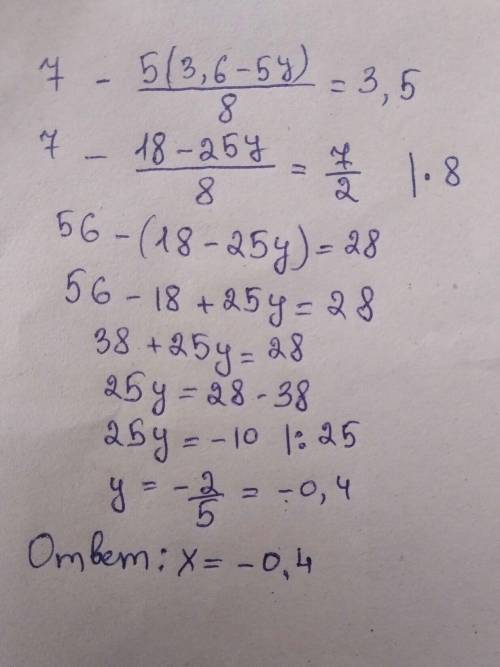 7 - 5(3,6-5y)/8 = 3,5
7 - 18-25y/8 = 7/2 |·8
56-(18-25y)=28
56-18+25y=28
38+25y=28
25y=28-38
25y=-10 |:25
y = -2/5 = -0,4
Ответ: x=-0,4